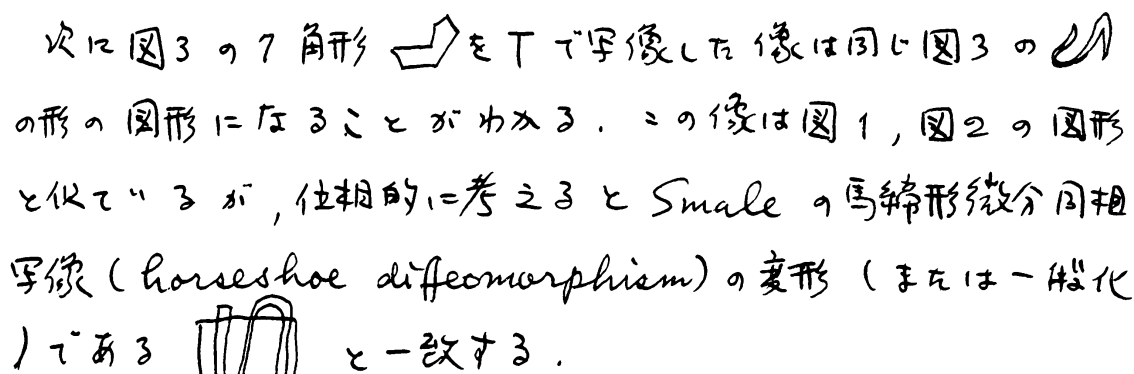 次に図3の7角形をTで写像した像は同じ図3の
の形の図形になることがわかる.この像は図1,図2の図形
と似ているが,位相的に考えるとSmaleの馬蹄形微分同相
写像(horseshoe diffeomorphism)の変形(または一般化
)である と一致する.